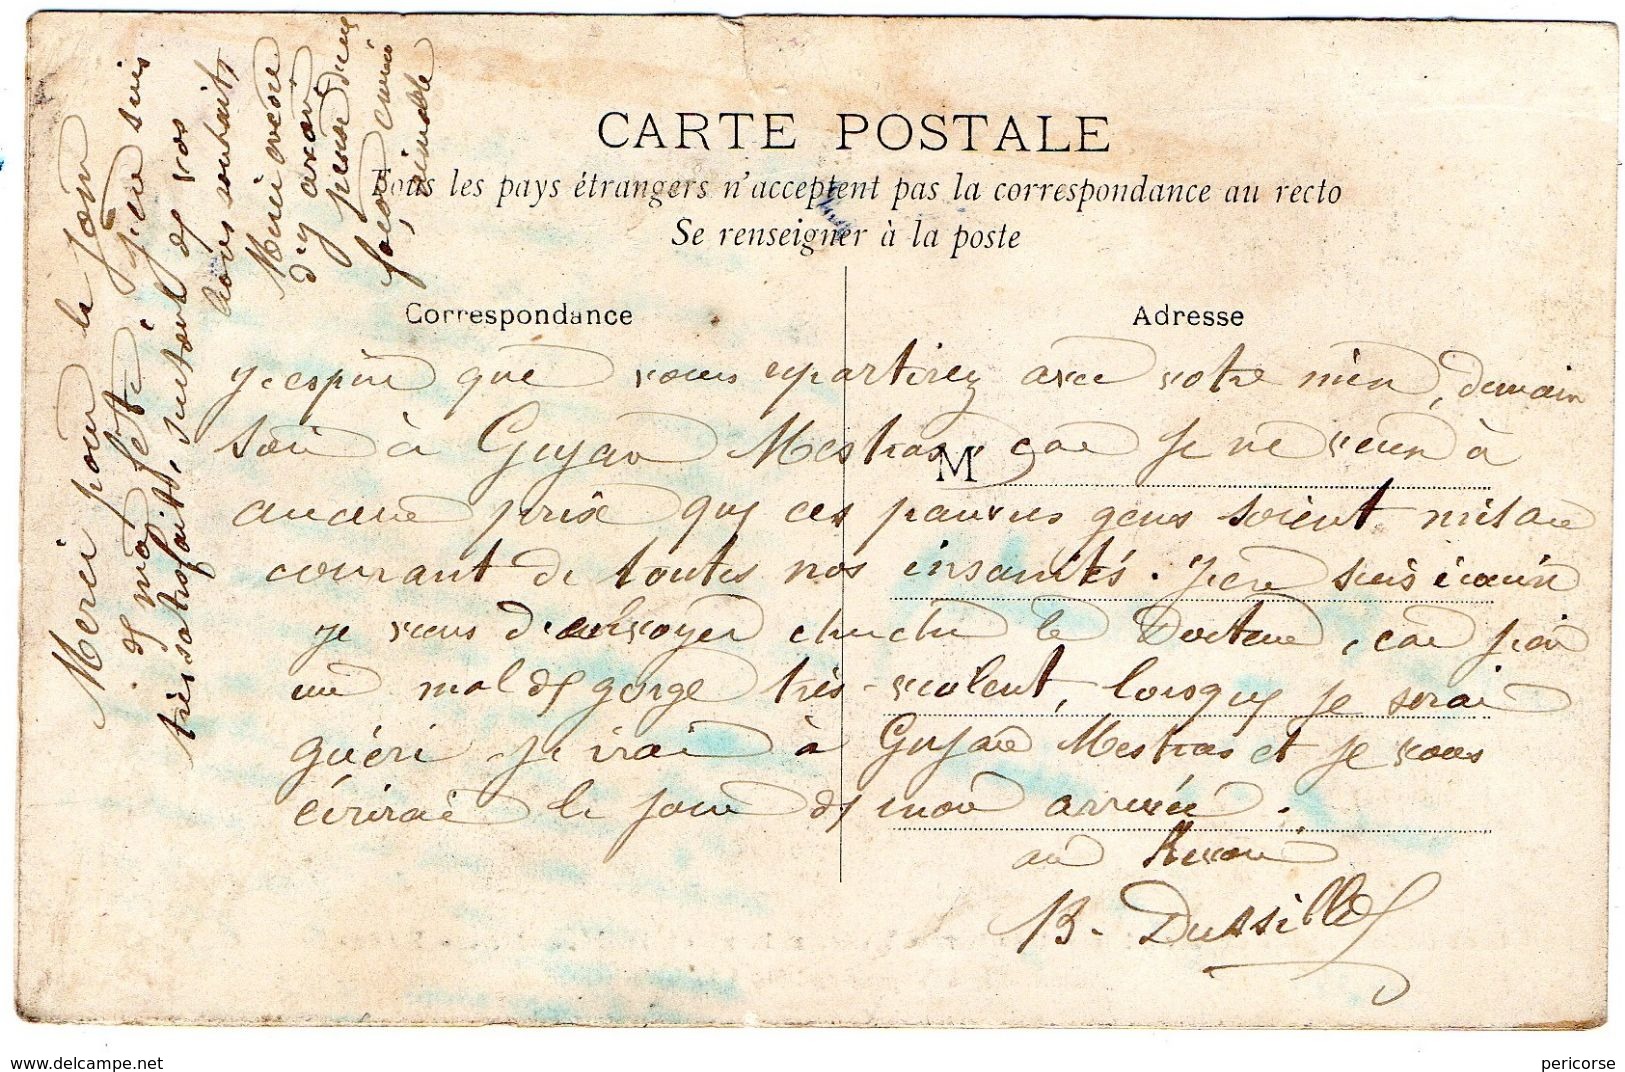 CARTE POSTALE
Tous les pays étrangers n'acceptent pas la correspondance au recto
Se renseigner à la poste
Correspondance
Adresse
M
j'espère que vous repartirez avec votre mère, demain
soir à Gujan Mestras, car je ne veux à
aucune prix que ces pauvres gens soient mis au
courant de toutes nos insanités. J'en suis
je viens d'envoyer chercher le Docteur, car j'ai
un mal de gorge très-violent, lorsque je serai
guéri je irai à Gujan Mestras et je vous
écrirai le jour de mon arrivée.
au Revoir
B. Dussilles
Merci pour le jour
de ma fête, j'en suis
très satisfaite, surtout de vos
bons souhaits
Merci encore
d'y avoir
pensé d'une
façon aimable
www.delcampe.net
pericorse